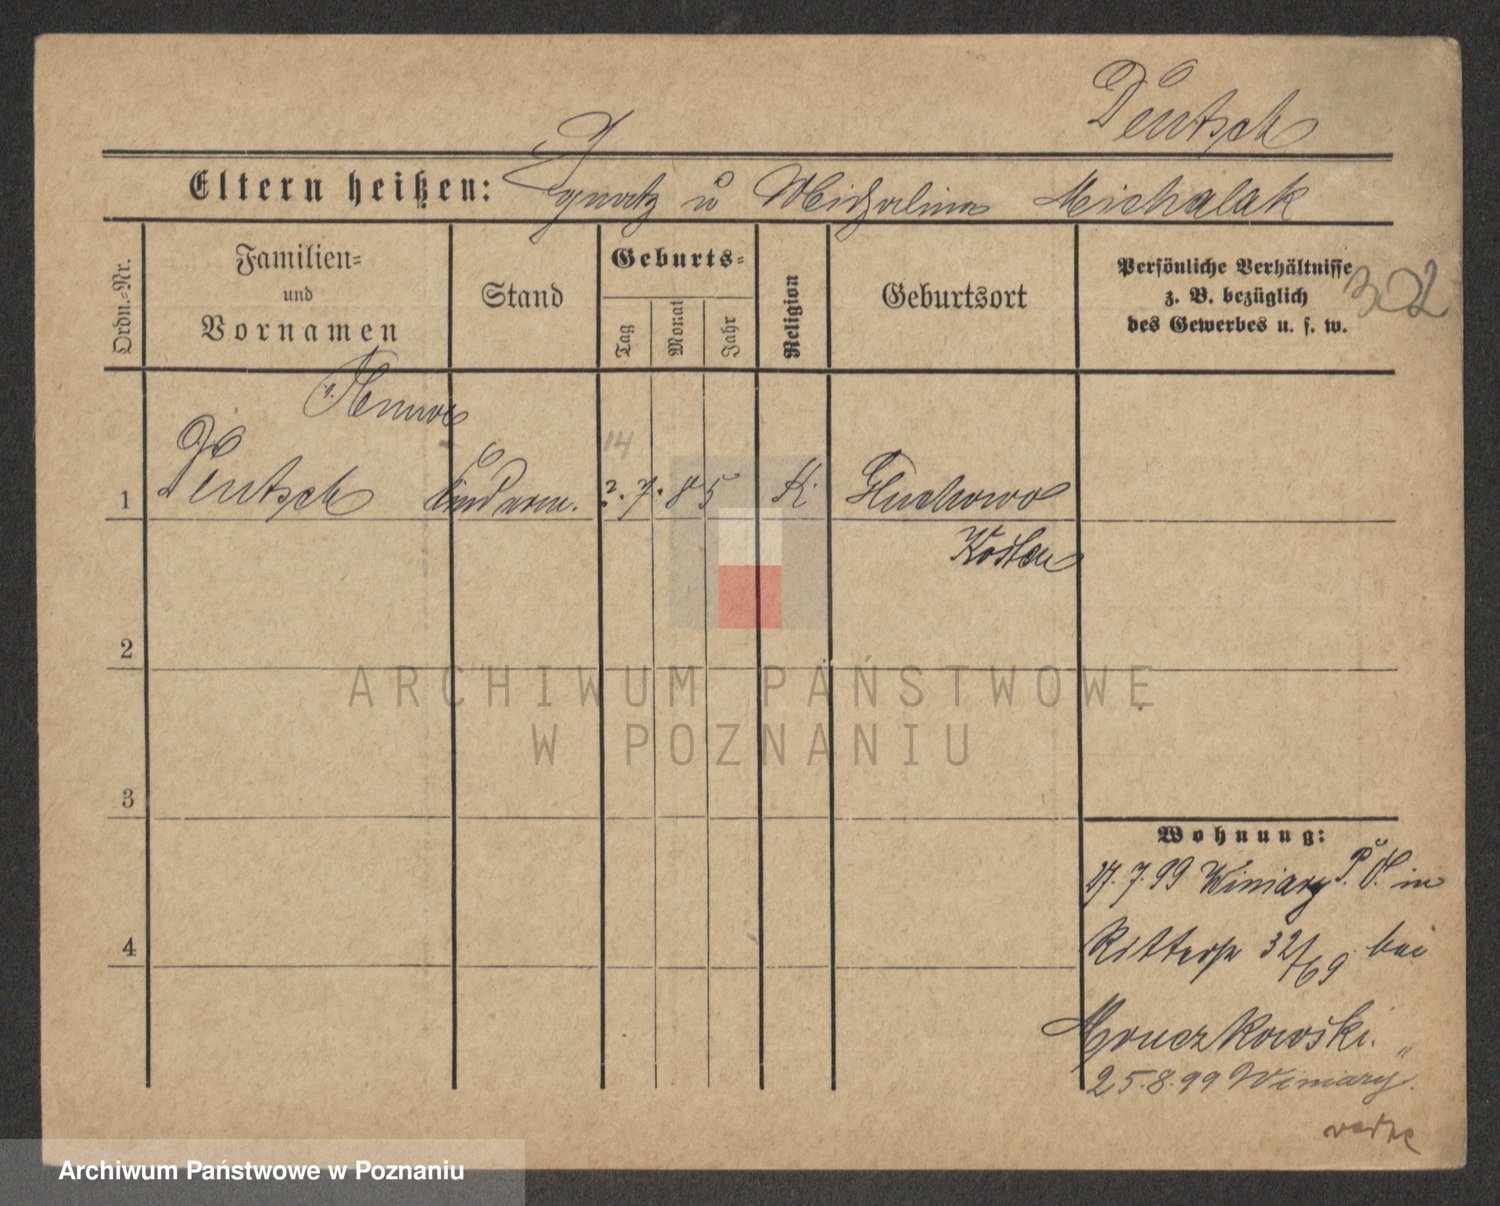 Deutsch
Eltern heißen: Ignatz u Michalina Michalak
Ordn.-Nr.
Familien-
und
Vornamen
Stand
Geburts-
Tag
Monat
Jahr
Religion
Geburtsort
Persönliche Verhältnisse
z. B. bezüglich
des Gewerbes u. s. w.
302
14
1 Deutsch 2. 7. 85 K. Gluchowo
Kosten
2
3
4
Wohnung:
7.99 Winiary P. O. in
Ritterstr 32/69 bei
25.8.99 Winiary.
ARCHIWUM PAŃSTWOWE
W POZNANIU
Archiwum Państwowe w Poznaniu